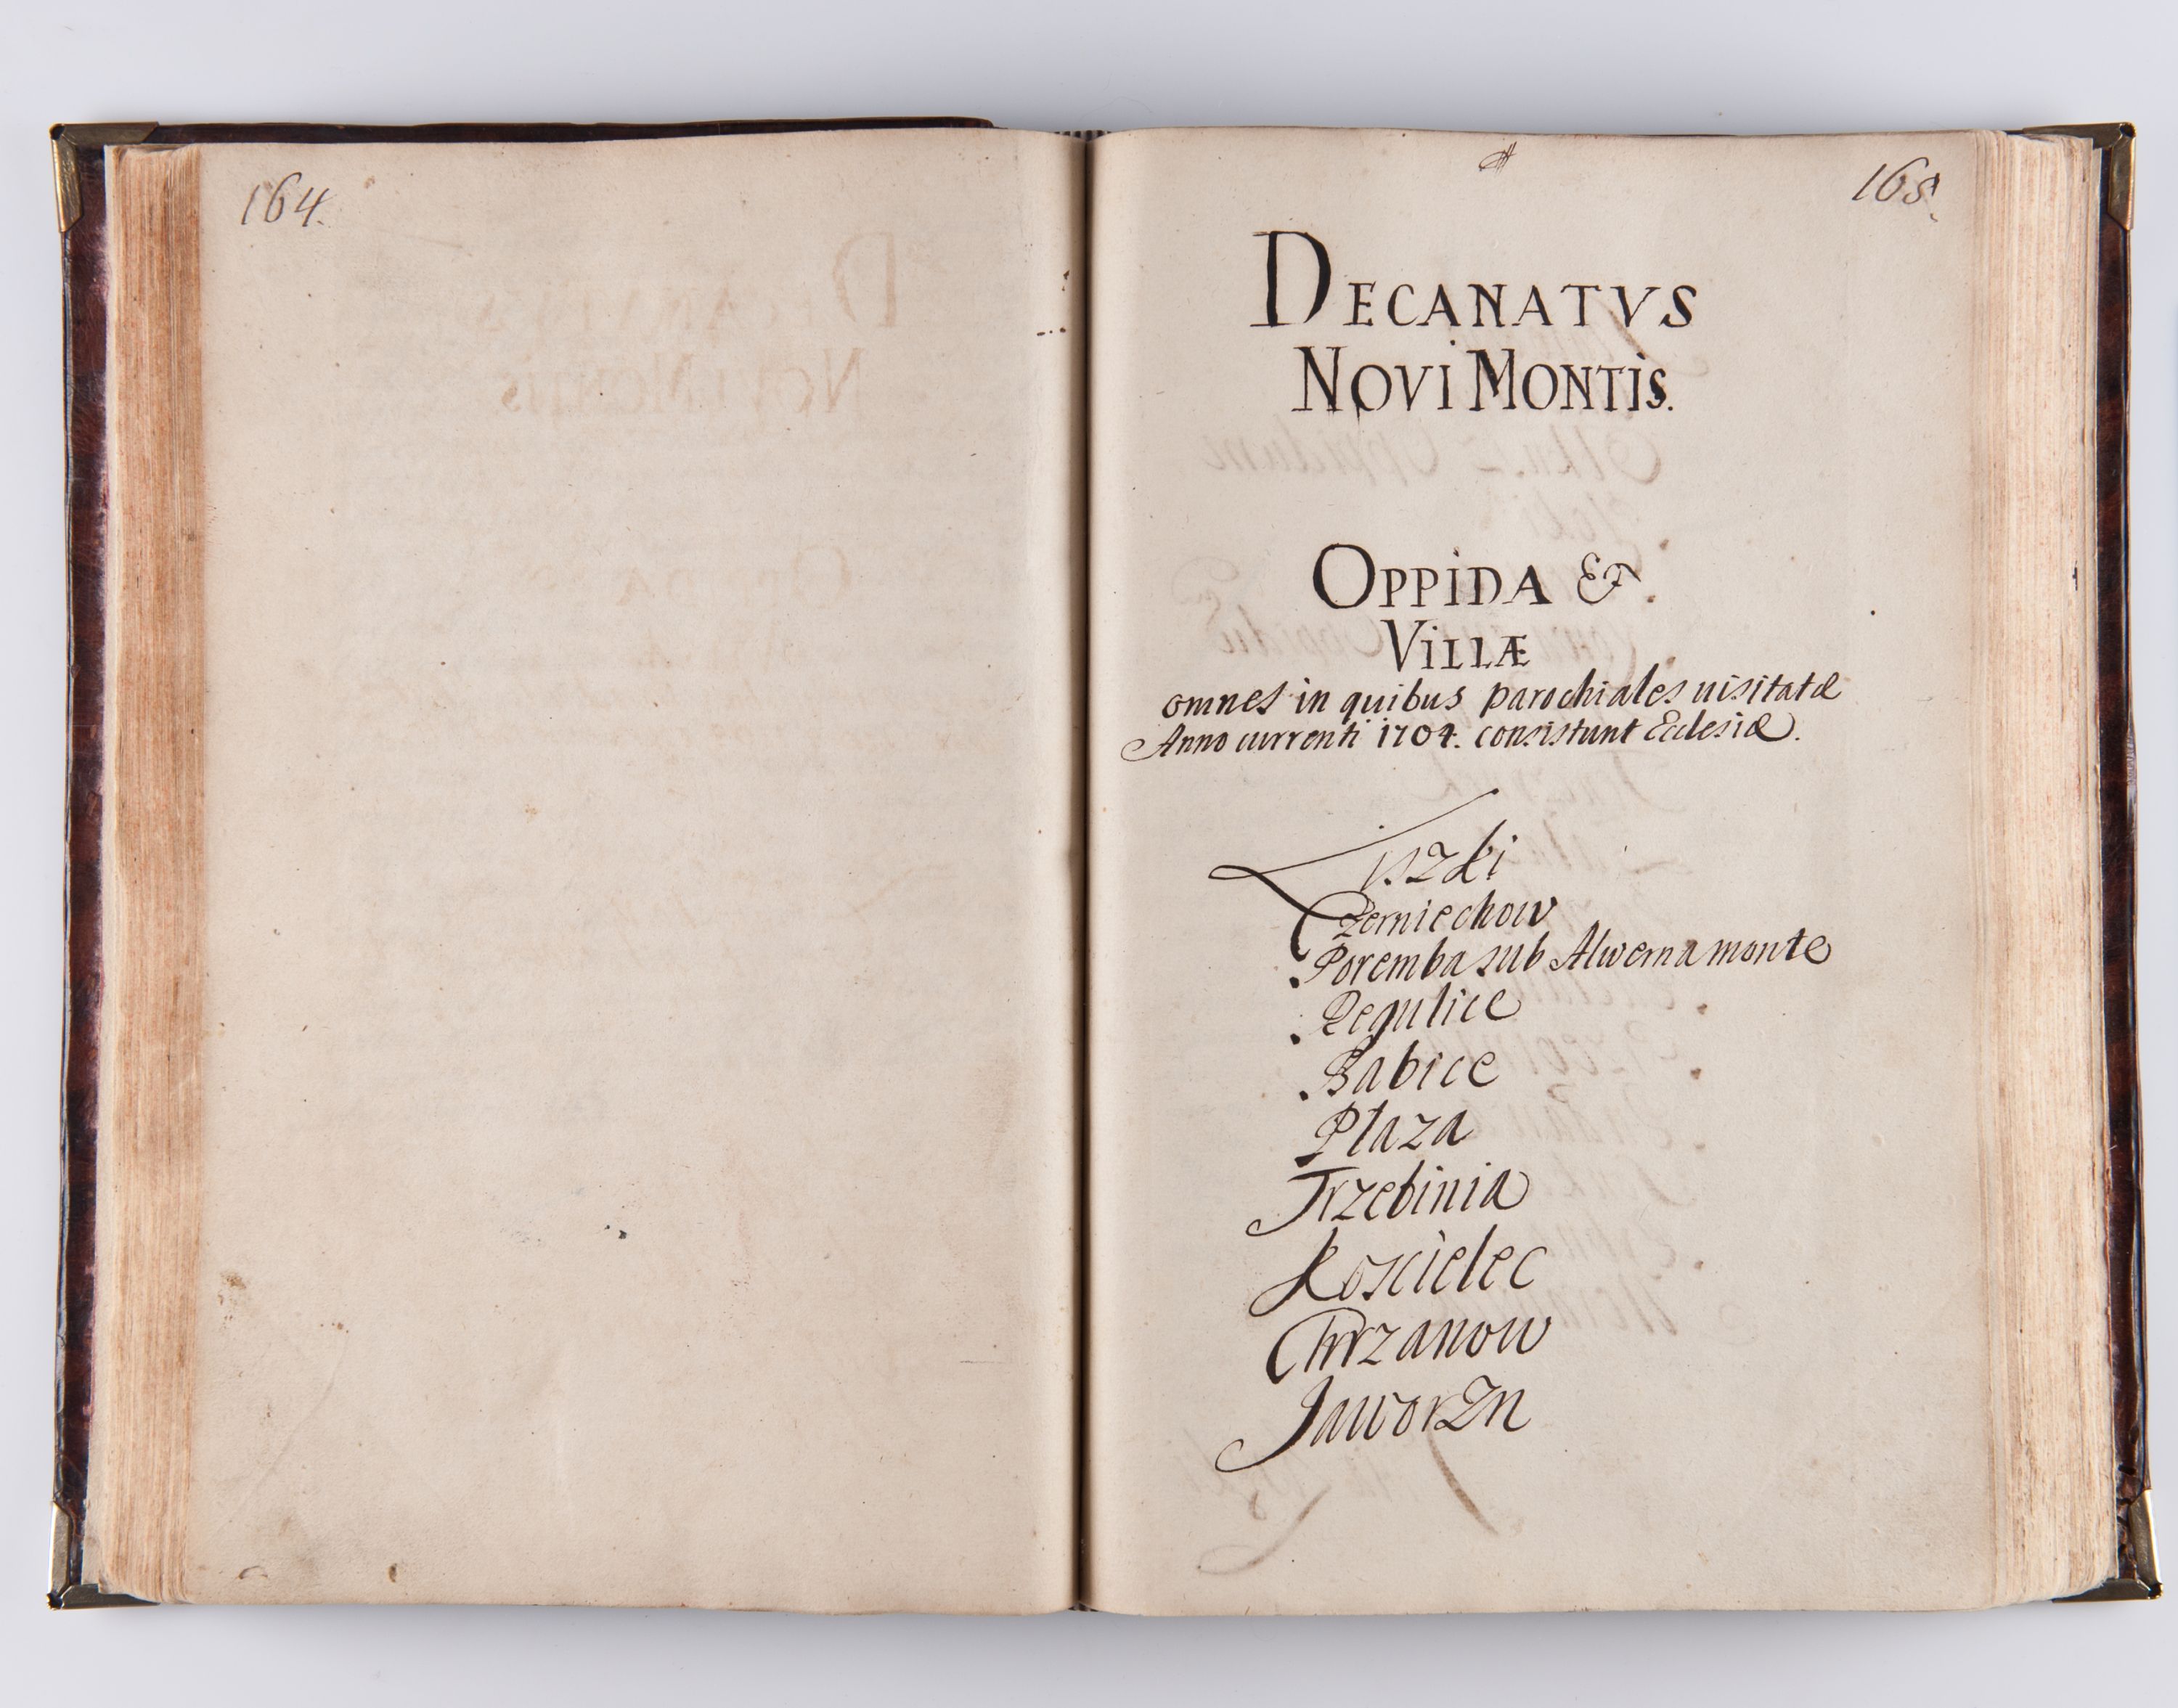 164.
165.
DECANATVS
NOVI MONTIS.
OPPIDA &
VILLÆ
omnes in quibus parochiales uisitatæ
Anno currenti 1704. consistunt Ecclesiæ.
Liszki
Czerniechow
Poremba sub Alwerna monte
Regulice
Babice
Płaza
Trzebinia
Koscielec
Chrzanow
Jaworzn